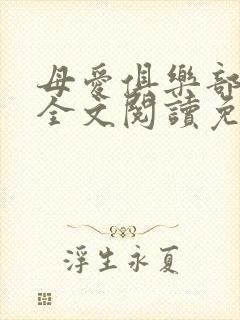 母愛俱樂部
全文閱讀免
浮生永夏